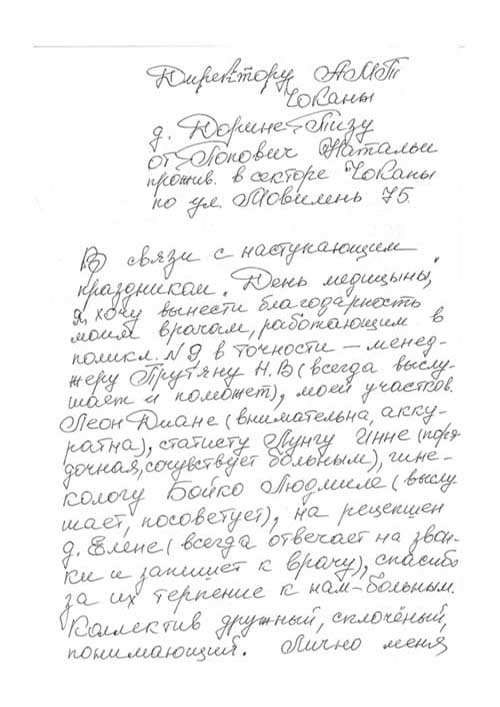 Директору АМТ
Чоканы
д. Дорине-Тизу
от Попович Натальи
прожив. в секторе Чоканы
по ул. Мовилень 75.
В связи с наступающим
праздником "День медицыны",
я, хочу вынести благодарность
моим врачам, работающим в
поликл. N9, в точности – менед-
жеру Прутяну Н.В (всегда выслу-
шает и поможет), моей участков.
Леон Диане (внимательна, акку-
ратна), статисту Лунгу Инне (поря-
дочная, сочувствует больным), гине-
кологу Бойко Людмиле (выслу
шает, посоветует), на рецепшен
д. Елене (всегда отвечает на звон-
ки и запишет к врачу), спасибо
за их терпение к нам-больным.
Коллектив дружный, сплочёный,
понимающий. Лично меня